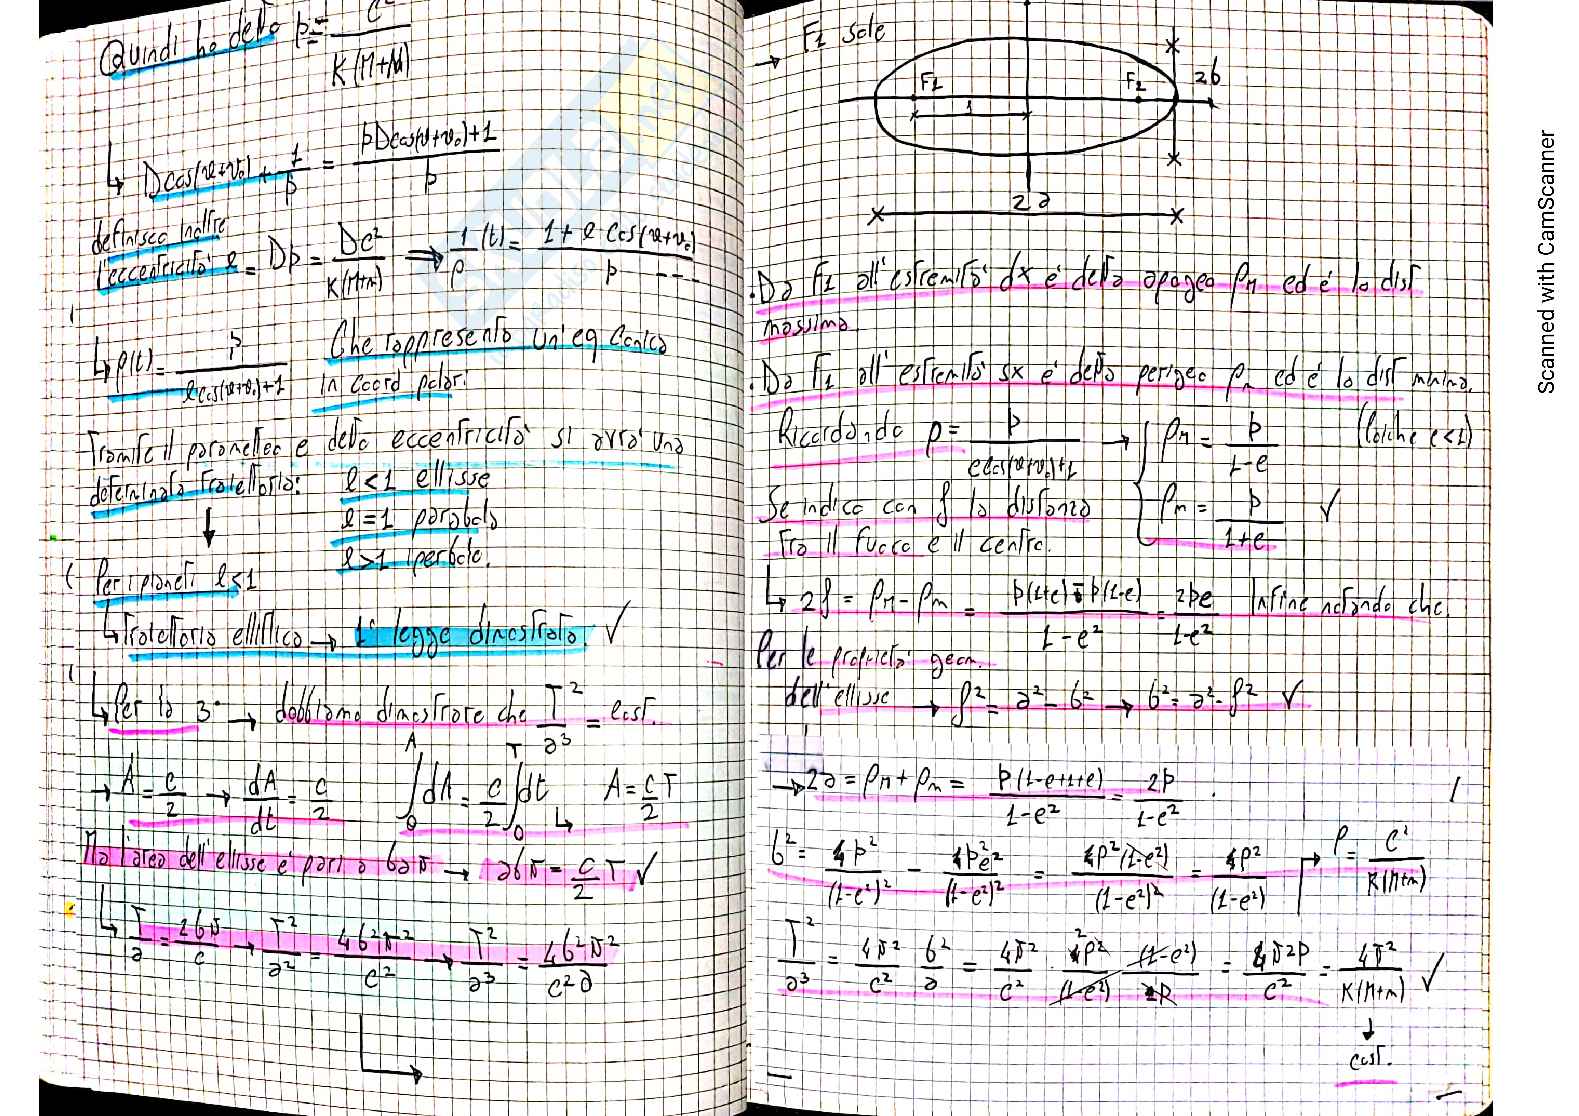 Quindi ho detto p = c² / K(M+M)
↳ Dcos(υ+υ₀) + 1/p = pDcos(υ+υ₀)+1 / p
definisco inoltre
l'eccentricità e = Dp = Dc² / K(M+m) ⟹ 1/ρ (t) = 1 + e cos(υ+υ₀) / p
↳ ρ(t) = p / ecos(υ+υ₀)+1 Che rappresenta un'eq Conica
in coord polari
Tramite il parametro e detto eccentricità si avrà una
determinata traiettoria: e<1 ellisse
e=1 parabola
e>1 iperbole.
Per i pianeti e<1
↳ Traiettoria ellittica → 1ª legge dimostrata. ✓
↳ Per la 3ª → dobbiamo dimostrare che T²/a³ = cost.
→ A = c/2 → dA/dt = c/2 ∫₀ᴬ dA = c/2 ∫₀ᵀ dt ↳ A = c/2 T
Ma l'area dell'ellisse è pari a baπ → abπ = c/2 T ✓
↳ T/a = 2bπ/c → T²/a² = 4b²π²/c² → T²/a³ = 4b²π²/c²a
→ F1 sole
F1 F2 2b
1
2a
. Da F1 all'estremità dx è detto apogeo ρM ed è la dist
massima.
. Da F1 all'estremità sx è detto perigeo ρm ed è la dist minima.
Ricordando ρ = p / ecos(υ+υ₀)+1 → { ρM = p / 1-e (poiché e<1)
Se indico con f la distanza ρm = p / 1+e ✓
tra il fuoco e il centro.
↳ 2f = ρM - ρm = p(1+e) - p(1-e) / 1-e² = 2pe / 1-e² Infine notando che.
Per le proprietà geom.
dell'ellisse → f² = a² - b² → b² = a² - f² ✓
→ 2a = ρM + ρm = p(1-e+1+e) / 1-e² = 2p / 1-e² .
b² = 4p² / (1-e²)² - 4p²e² / (1-e²)² = 4p²(1-e²) / (1-e²)² = 4p² / (1-e²) → P = c² / K(M+m)
T²/a³ = 4π²/c² b²/a = 4π²/c² · 4p²/(1-e²) (1-e²)/2p = 4π²p/c² = 4π² / K(M+m) ✓
↓
cost.
Scanned with CamScanner